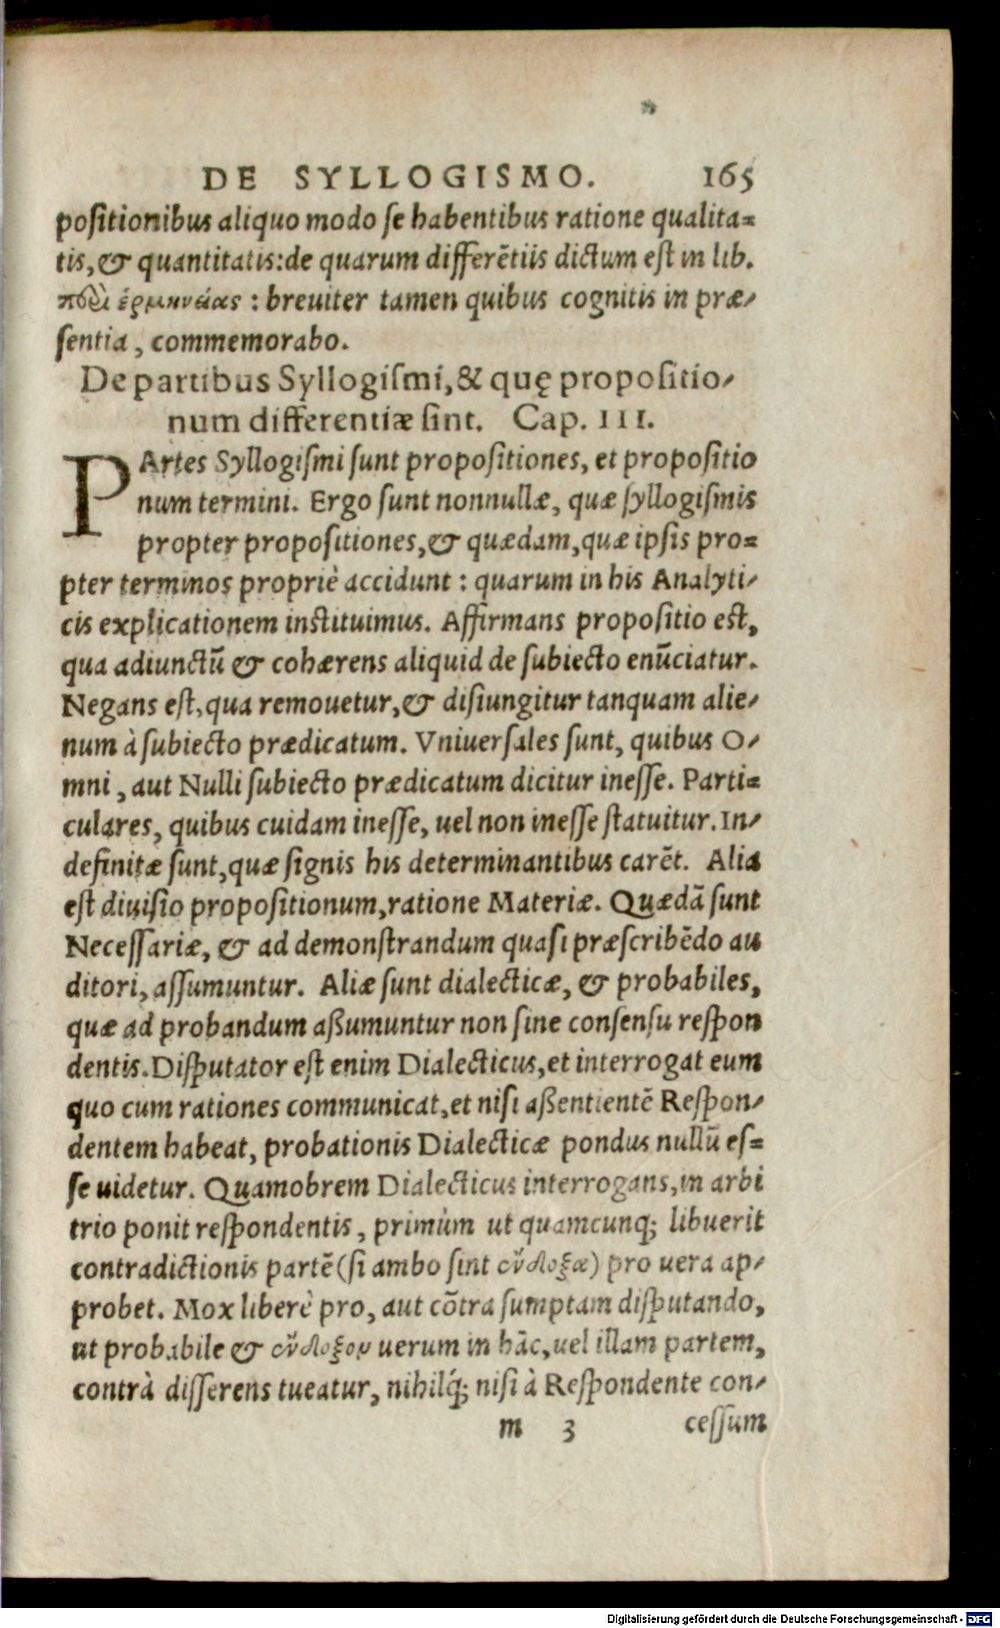 DE SYLLOGISMO. 165
poſitionibus aliquo modo ſe habentibus ratione qualita=
tis, & quantitatis: de quarum differẽtiis dictum eſt in lib.
περὶ ἑρμηνείας : breuiter tamen quibus cognitis in præ-
ſentia, commemorabo.
De partibus Syllogiſmi, & quę propoſitio-
num differentiæ ſint. Cap. III.
PArtes Syllogiſmi ſunt propoſitiones, et propoſitio
num termini. Ergo ſunt nonnullæ, quæ ſyllogiſmis
propter propoſitiones, & quædam, quæ ipſis pro=
pter terminos propriè accidunt : quarum in his Analyti-
cis explicationem inſtituimus. Affirmans propoſitio eſt,
qua adiunctũ & cohærens aliquid de ſubiecto enũciatur.
Negans eſt, qua remouetur, & diſiungitur tanquam alie-
num à ſubiecto prædicatum. Vniuerſales ſunt, quibus O-
mni, aut Nulli ſubiecto prædicatum dicitur ineſſe. Parti=
culares, quibus cuidam ineſſe, uel non ineſſe ſtatuitur. In-
definitæ ſunt, quæ ſignis his determinantibus carẽt. Alia
eſt diuiſio propoſitionum, ratione Materiæ. Quædã ſunt
Neceſſariæ, & ad demonſtrandum quaſi præſcribẽdo au
ditori, aſſumuntur. Aliæ ſunt dialecticæ, & probabiles,
quæ ad probandum aßumuntur non ſine conſenſu reſpon
dentis. Diſputator eſt enim Dialecticus, et interrogat eum
quo cum rationes communicat, et niſi aßentientẽ Reſpon-
dentem habeat, probationis Dialecticæ pondus nullũ eſ=
ſe uidetur. Quamobrem Dialecticus interrogans, in arbi
trio ponit reſpondentis, primùm ut quamcunq; libuerit
contradictionis partẽ (ſi ambo ſint ἔνδοξα) pro uera ap-
probet. Mox liberè pro, aut cõtra ſumptam diſputando,
ut probabile & ἔνδοξον uerum in hãc, uel illam partem,
contrà diſſerens tueatur, nihilq́; niſi à Reſpondente con-
m 3 ceſſum
Digitalisierung gefördert durch die Deutsche Forschungsgemeinschaft - DFG